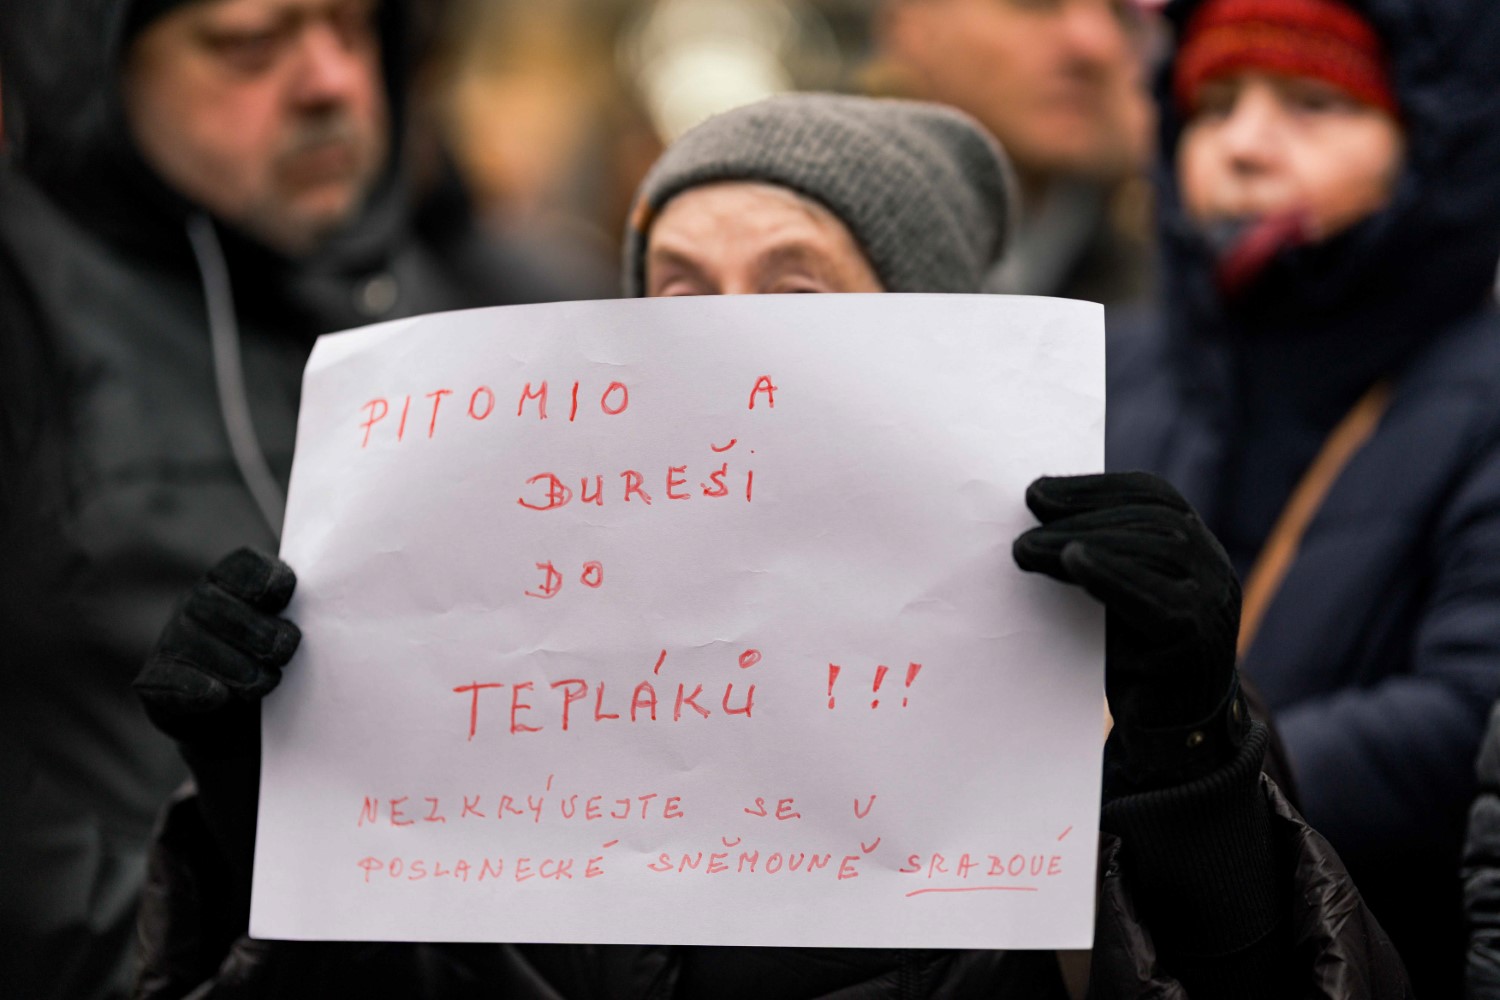 PITOMIO A
BUREŠI
DO
TEPLÁKŮ !!!
NEZKRÝVEJTE SE V
POSLANECKÉ SNĚMOVNĚ SRABOVÉ